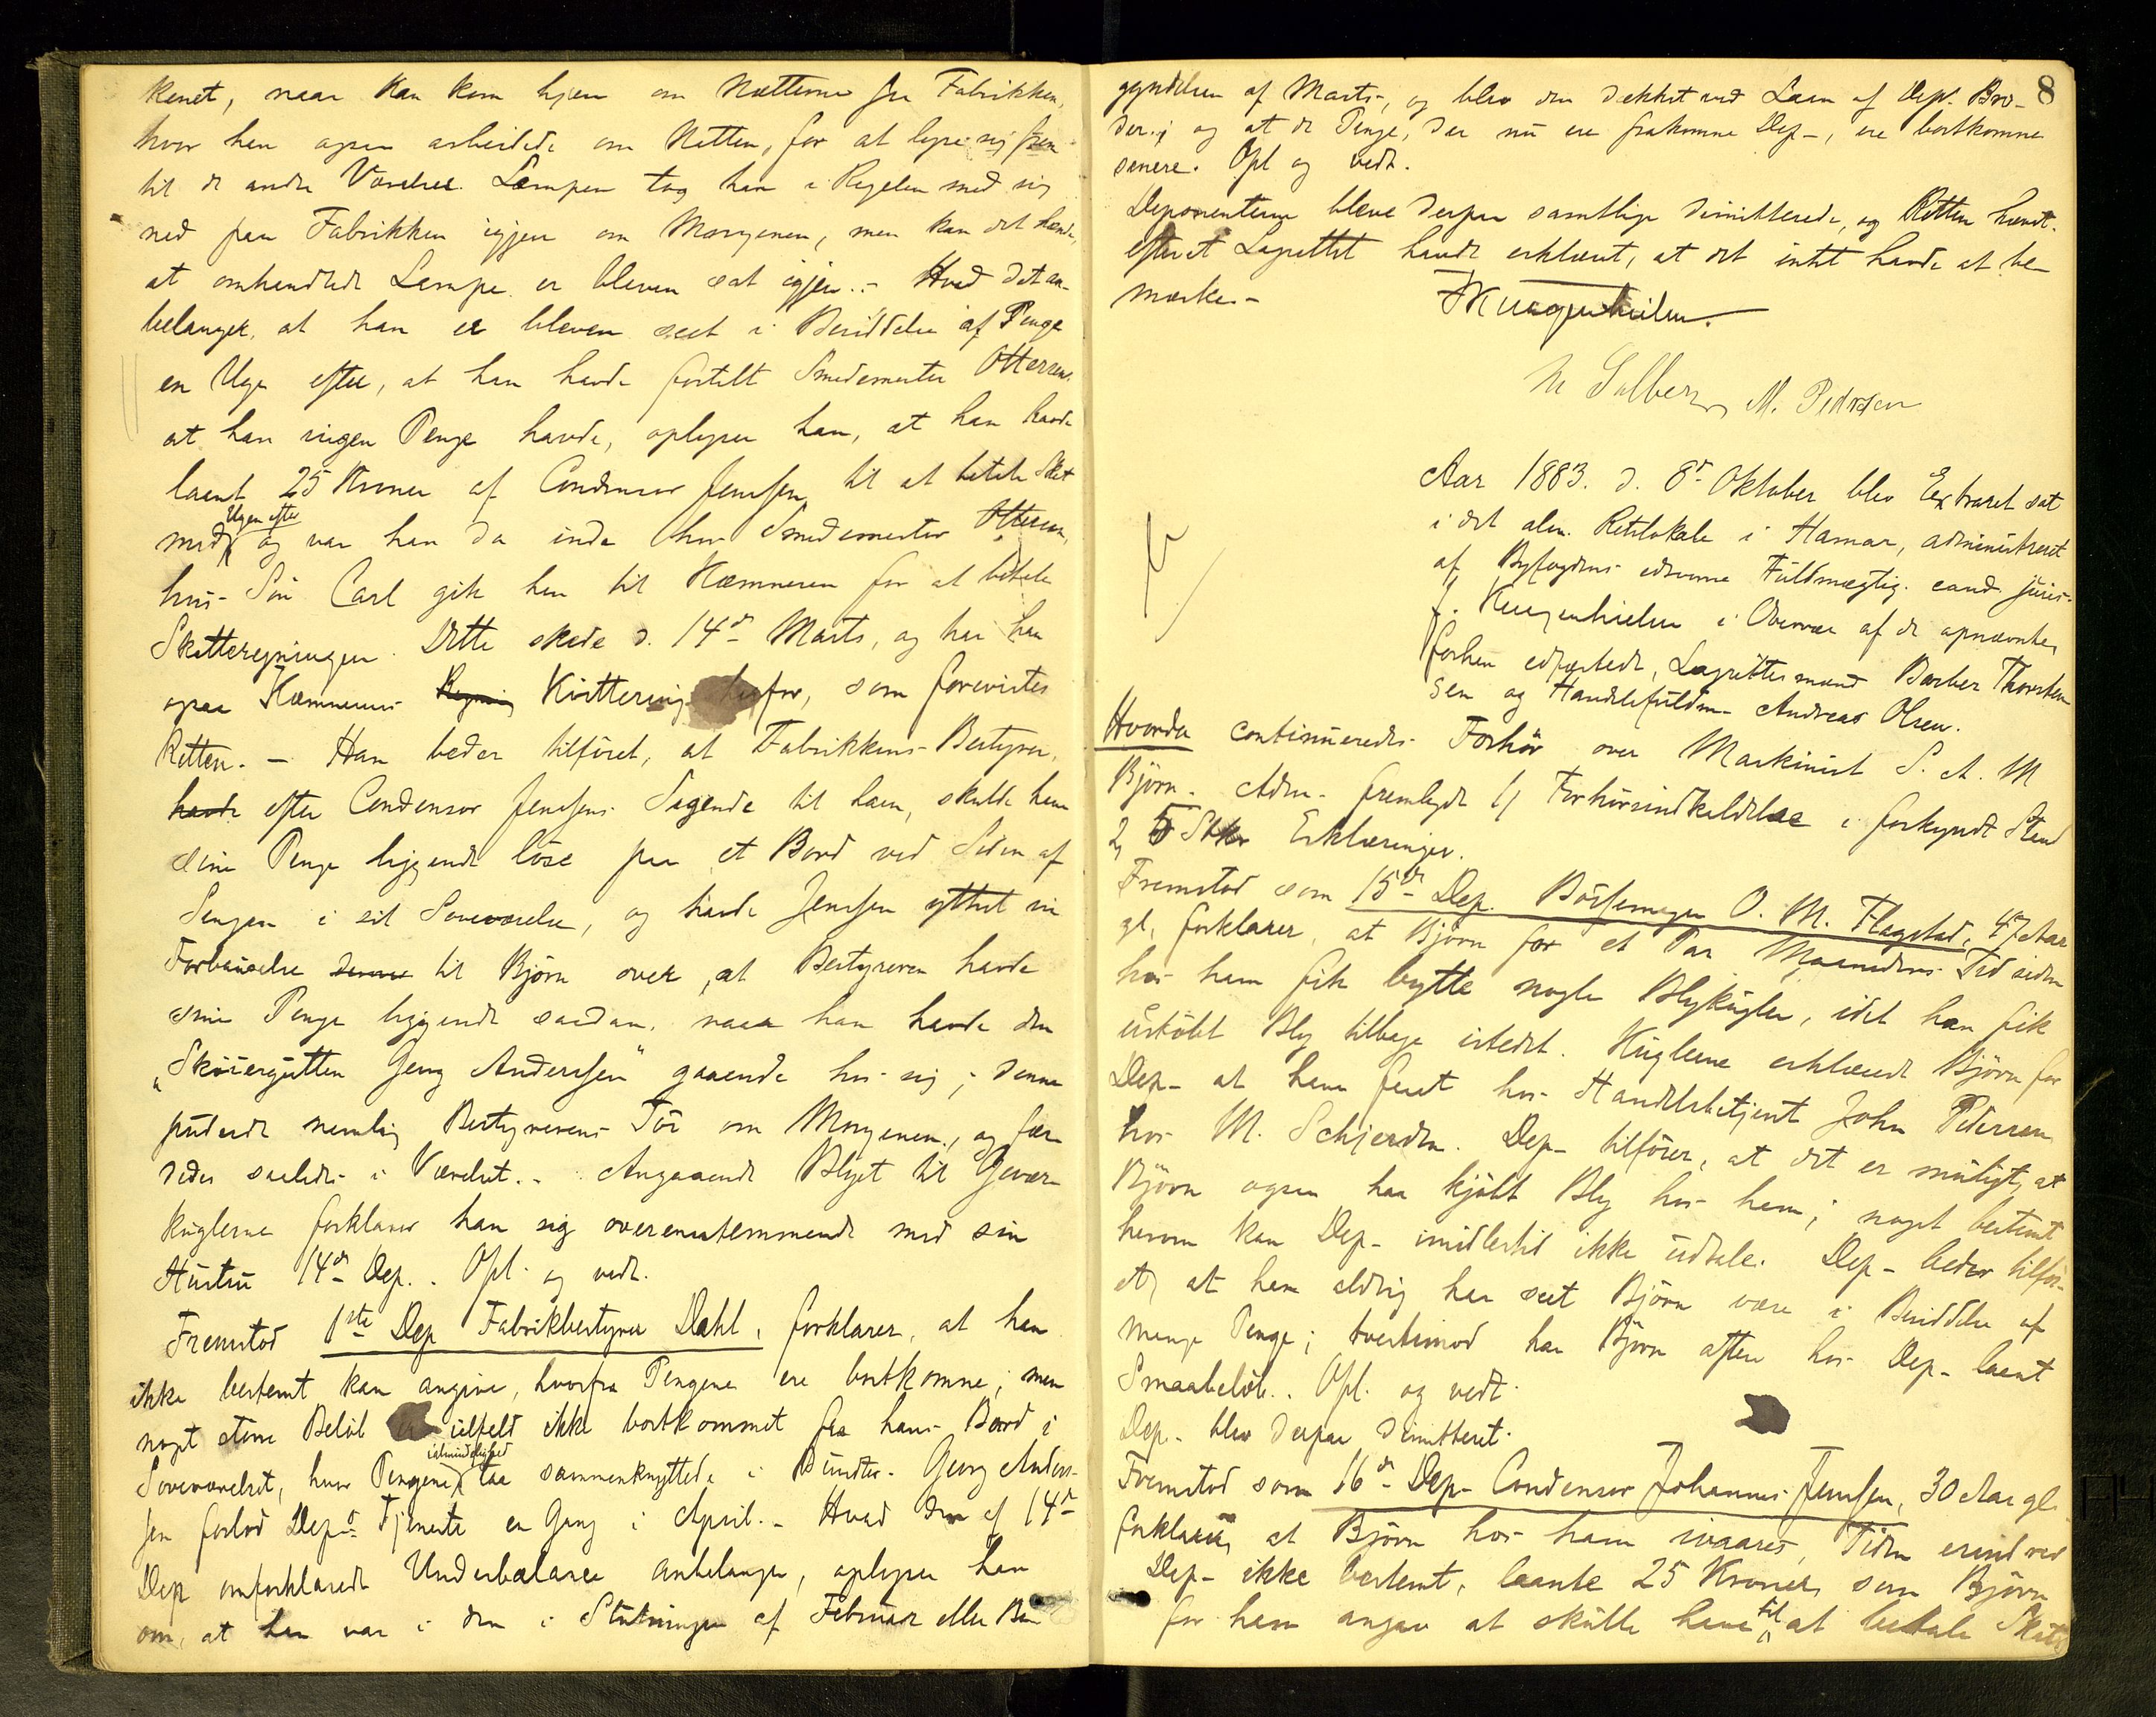 kenet, naar han kom hjem om Nætterne fra Fabrikken,
hvor han ogsaa arbeidede om Natten, for at lyse sig frem
til de andre Værelser. Lampen tog han i Regelen med sig
ned paa Fabrikken igjen om Morgenen, men kan det hænde,
at omhandlede Lampe er bleven sat igjen. - Hvad det an-
belanger, at han er bleven seet i Besiddelse af Penge
en Uge efter, at han havde fortalt Smedemester Ottersen,
at han ingen Penge havde, oplyser han, at han havde
laant 25 Kroner af Condensor Jenssen til at betale Skat
Ugen efter
med, og var han da inde hos Smedemester Ottersen,
hvis Søn Carl gik hen til Kæmneren for at betale
Skatteregningen. Dette skede d. 14de Marts, og har han
ogsaa Kæmnerens Regning Kvittering herfor, som forevistes
Retten. - Han beder tilføret, at Fabrikkens Bestyrer,
havde efter Condensor Jenssens Sigende til ham, skulde have
sine Penge liggende løse paa et Bord ved Siden af
Sengen i sit Soveværelse, og havde Jenssen yttret sin
Forbauselse til Bjørn over, at Bestyreren havde
sine Penge liggende saadan, naar han havde den
"Skøiergutten Georg Anderssen" gaaende hos sig; denne
pudsede nemlig Bestyrerens Tøi om Morgenen, og fær-
dedes saaledes i Værelset. - Angaaende Blyet til Gevær-
kuglerne forklarer han sig overensstemmende med sin
Hustru 14de Dep. - Opl. og vedt.
Fremstod 1ste Dep Fabrikbestyrer Dahl, forklarer, at han
ikke bestemt kan angive, hvorfra Pengene ere bortkomne; men
noget større Beløb er ialfald ikke bortkommet fra hans Bord i
ialmindelighed
Soveværelset, hvor Pengene laa sammenknyttede i Bundter. Georg Anders-
sen forlod Dep.s Tjeneste en Gang i April. - Hvad den af 14de
Dep omforklarede Underbalance anbelanger, oplyser han
om, at han var i den i Slutningen af Februar eller Be-
8
gyndelsen af Marts, og blev den dækket ved Laan af Dep. Bro-
der; og at de Penge, der nu ere frakomne Dep -, ere bortkomne
senere. Opl og vedt.
Deponenterne bleve derpaa samtlige dimitterede, og Retten hævet.
efterat Lagrettet havde erklæret, at det intet havde at be-
mærke -
N Solberg M. Pedersen
Aar 1883. d. 8de Oktober blev Extraret sat
i det alm. Retslokale i Hamar, administreret
af Byfogdens edsvorne Fuldmægtig. cand. juris.
J. Krugenhielm i Overvær af de opnævnte,
forhen edfæstede, Lagrettesmænd Barber Thorsten-
sen og Handelsfuldm. Andreas Olsen.
Hvorda continueredes Forhør over Maskinist S. A. M
Bjørn. Adm. fremlagde 1, Forhørsindkaldelse i forkyndt Stand
2, 5 Stkr Erklæringer.
Fremstod som 15de Dep. Børsemager O. M. Flagstad, 47 Aar
gl, forklarer, at Bjørn for et Par Maaneders Tid siden
hos ham fik bytte nogle Blykugler, idet han fik
ustøbt Bly tilbage istedet. Kuglerne erklærede Bjørn for
Dep - at have faaet hos Handelsbetjent John Petersen
hos M. Schjerden. Dep - tilfører, at det er muligt, at
Bjørn ogsaa har kjøbt Bly hos ham; noget bestemt
herom kan Dep - imidlertid ikke udtale. Dep - beder tilfør-
et, at han aldrig har seet Bjørn være i Besiddelse af
mange Penge; tvertimod har Bjørn oftere hos Dep - laant
Smaabeløb. Opl. og vedt.
Dep - blev derpaa dimitteret.
Fremstod som 16de Dep - Condensor Johannes Jenssen, 30 Aar gl
forklarer, at Bjørn hos ham ivaares, Tiden erindrer
Dep - ikke bestemt, laante 25 Kroner, som Bjørn
for ham angav at skulle have til at betale Skat